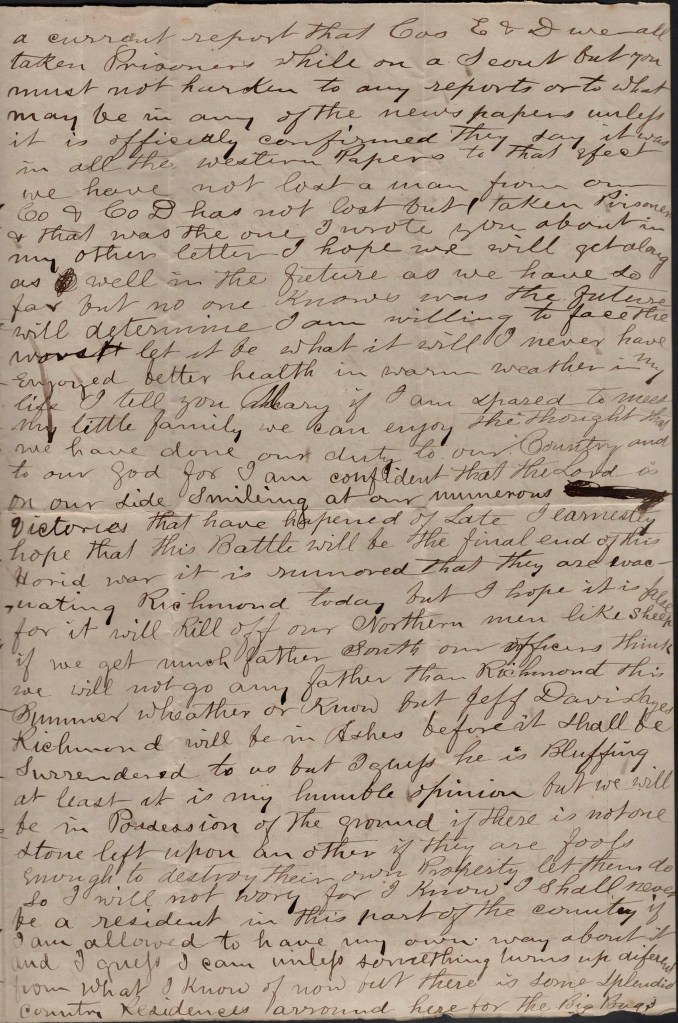 a current report that Cos E & D we all
taken Prisoners while on a Scout but you
must not harken to any reports or to what
may be in any of the news papers unless
it is officiely confirmed they say it was
in all the western Papers to that efect
we have not lost a man from our
Co & Co D has not lost but 1 taken Prisoner
& that was the one I wrote you about in
my other letter I hope we will get along
as well in the future as we have so
far but no one Knows was the future
will determine I am willing to face the
worst let it be what it will I never have
Enjoyed better health in warm weather in my
life I tell you Mary if I am spared to meet
my little family we can enjoy the thought that
we have done our duty to our Country and
to our God for I am confident that the Lord is
on our side Smileing at our numerous
Victories that have hapened of Late I earnestly
hope that this Battle will be the final end of this
Horid war it is rumored that they are evac-
uating Richmond today but I hope it is false
for it will Kill off our Northern men like sheep
if we get much father South our officers think
we will not go any father than Richmond this
Summer wheather or Know but Jeff Davis Sayes
Richmond will be in Ashes before it shall be
Surrendered to us but I guess he is Bluffing
at least it is my humble opinion but we will
be in Possession of the ground if there is not one
stone left upon an other if they are fools
Enough to destroy their own Property let them do
so I will not wory for I Know I shall never
be a resident in this part of the country if
I am allowed to have my own way about it
and I guess I cam unless something turns up diferent
from what I know of now out there is some splendid
country Residences arround here for the Big Bugs